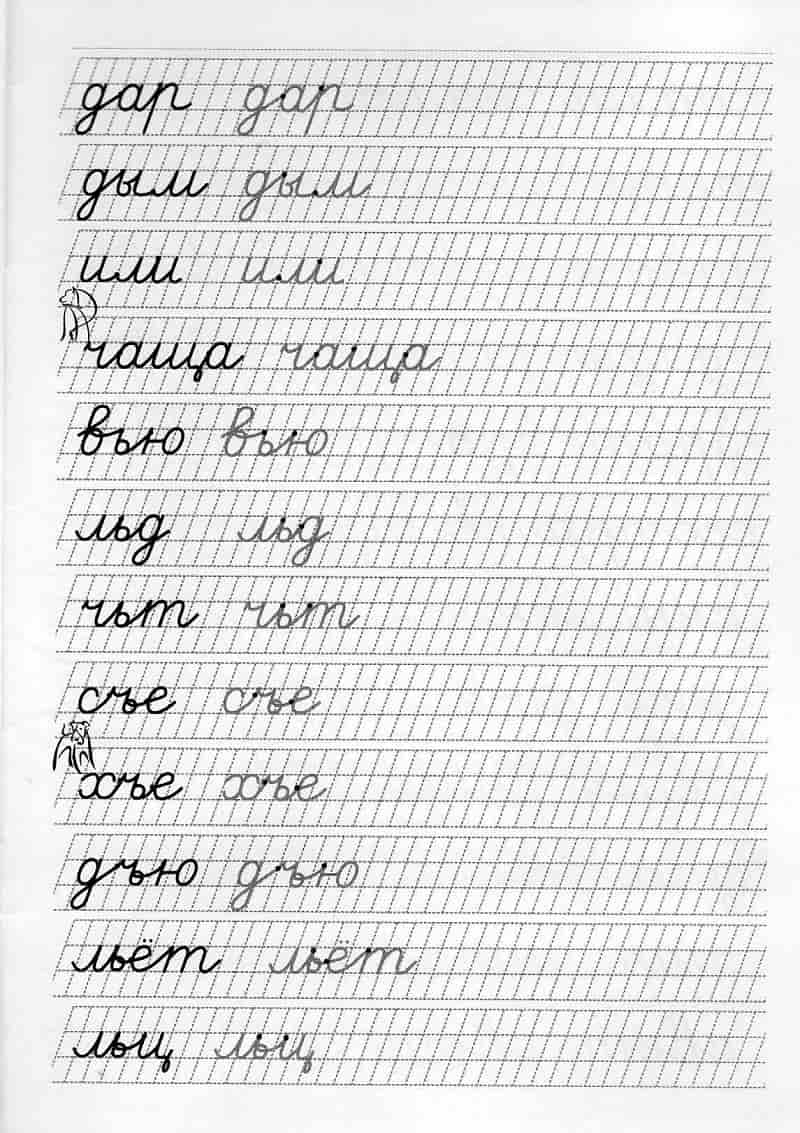 дар дар
дым дым
или или
чаща чаща
вью вью
льд льд
чьт чьт
съе съе
хъе хъе
дъю дъю
льёт льет
льц льц